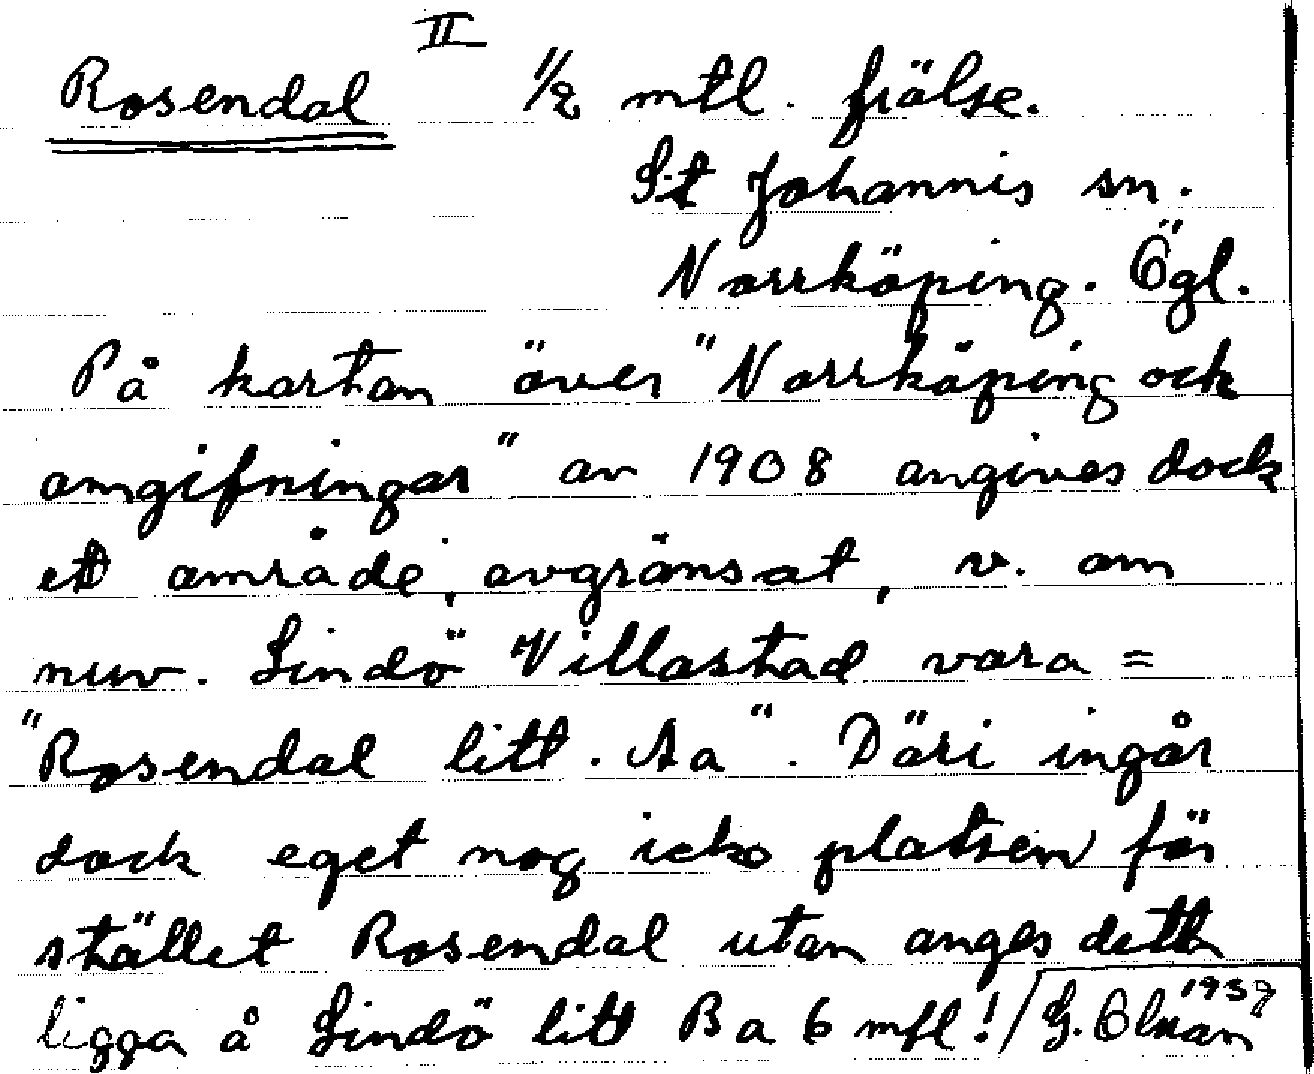 II
Rosendal 1/2 mtl. frälse.
St Johannis sn.
Norrköping. Ögl.
På kartan över "Norrköping ock
omgifningar" av 1908 angives dock
ett område, avgränsat, v. om
nuv. Lindö Villastad vara =
"Rosendal litt. Aa". Däri ingår
dock eget nog icke platsen för
stället Rosendal utan anges dett
ligga å Lindö litt Ba 6 mfl! / 1939